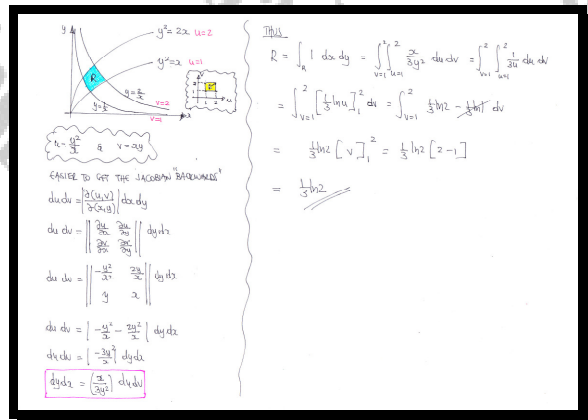 y
y² = 2x u=2
y² = x u=1
R
v
2
1
R
1 2 u
y = 1/x
y = 2/x
v=2
v=1
x
u = y²/x & v = xy
EASIER TO GET THE JACOBIAN "BACKWARDS"
du dv = |∂(u,v)/∂(x,y)| dx dy
du dv = || ∂u/∂x ∂u/∂y
∂v/∂x ∂v/∂y || dy dx
du dv = || -y²/x² 2y/x
y x || dy dx
du dv = | -y²/x - 2y²/x | dy dx
du dv = | -3y²/x | dy dx
dy dx = (x/3y²) du dv
THUS
R = ∫_R 1 dx dy = ∫_{v=1}^{2} ∫_{u=1}^{2} x/3y² du dv = ∫_{v=1}^{2} ∫_{u=1}^{2} 1/3u du dv
= ∫_{v=1}^{2} [1/3 ln u]_1^2 dv = ∫_{v=1}^{2} 1/3 ln2 - 1/3 ln1 dv
= 1/3 ln2 [v]_1^2 = 1/3 ln2 [2-1]
= 1/3 ln2